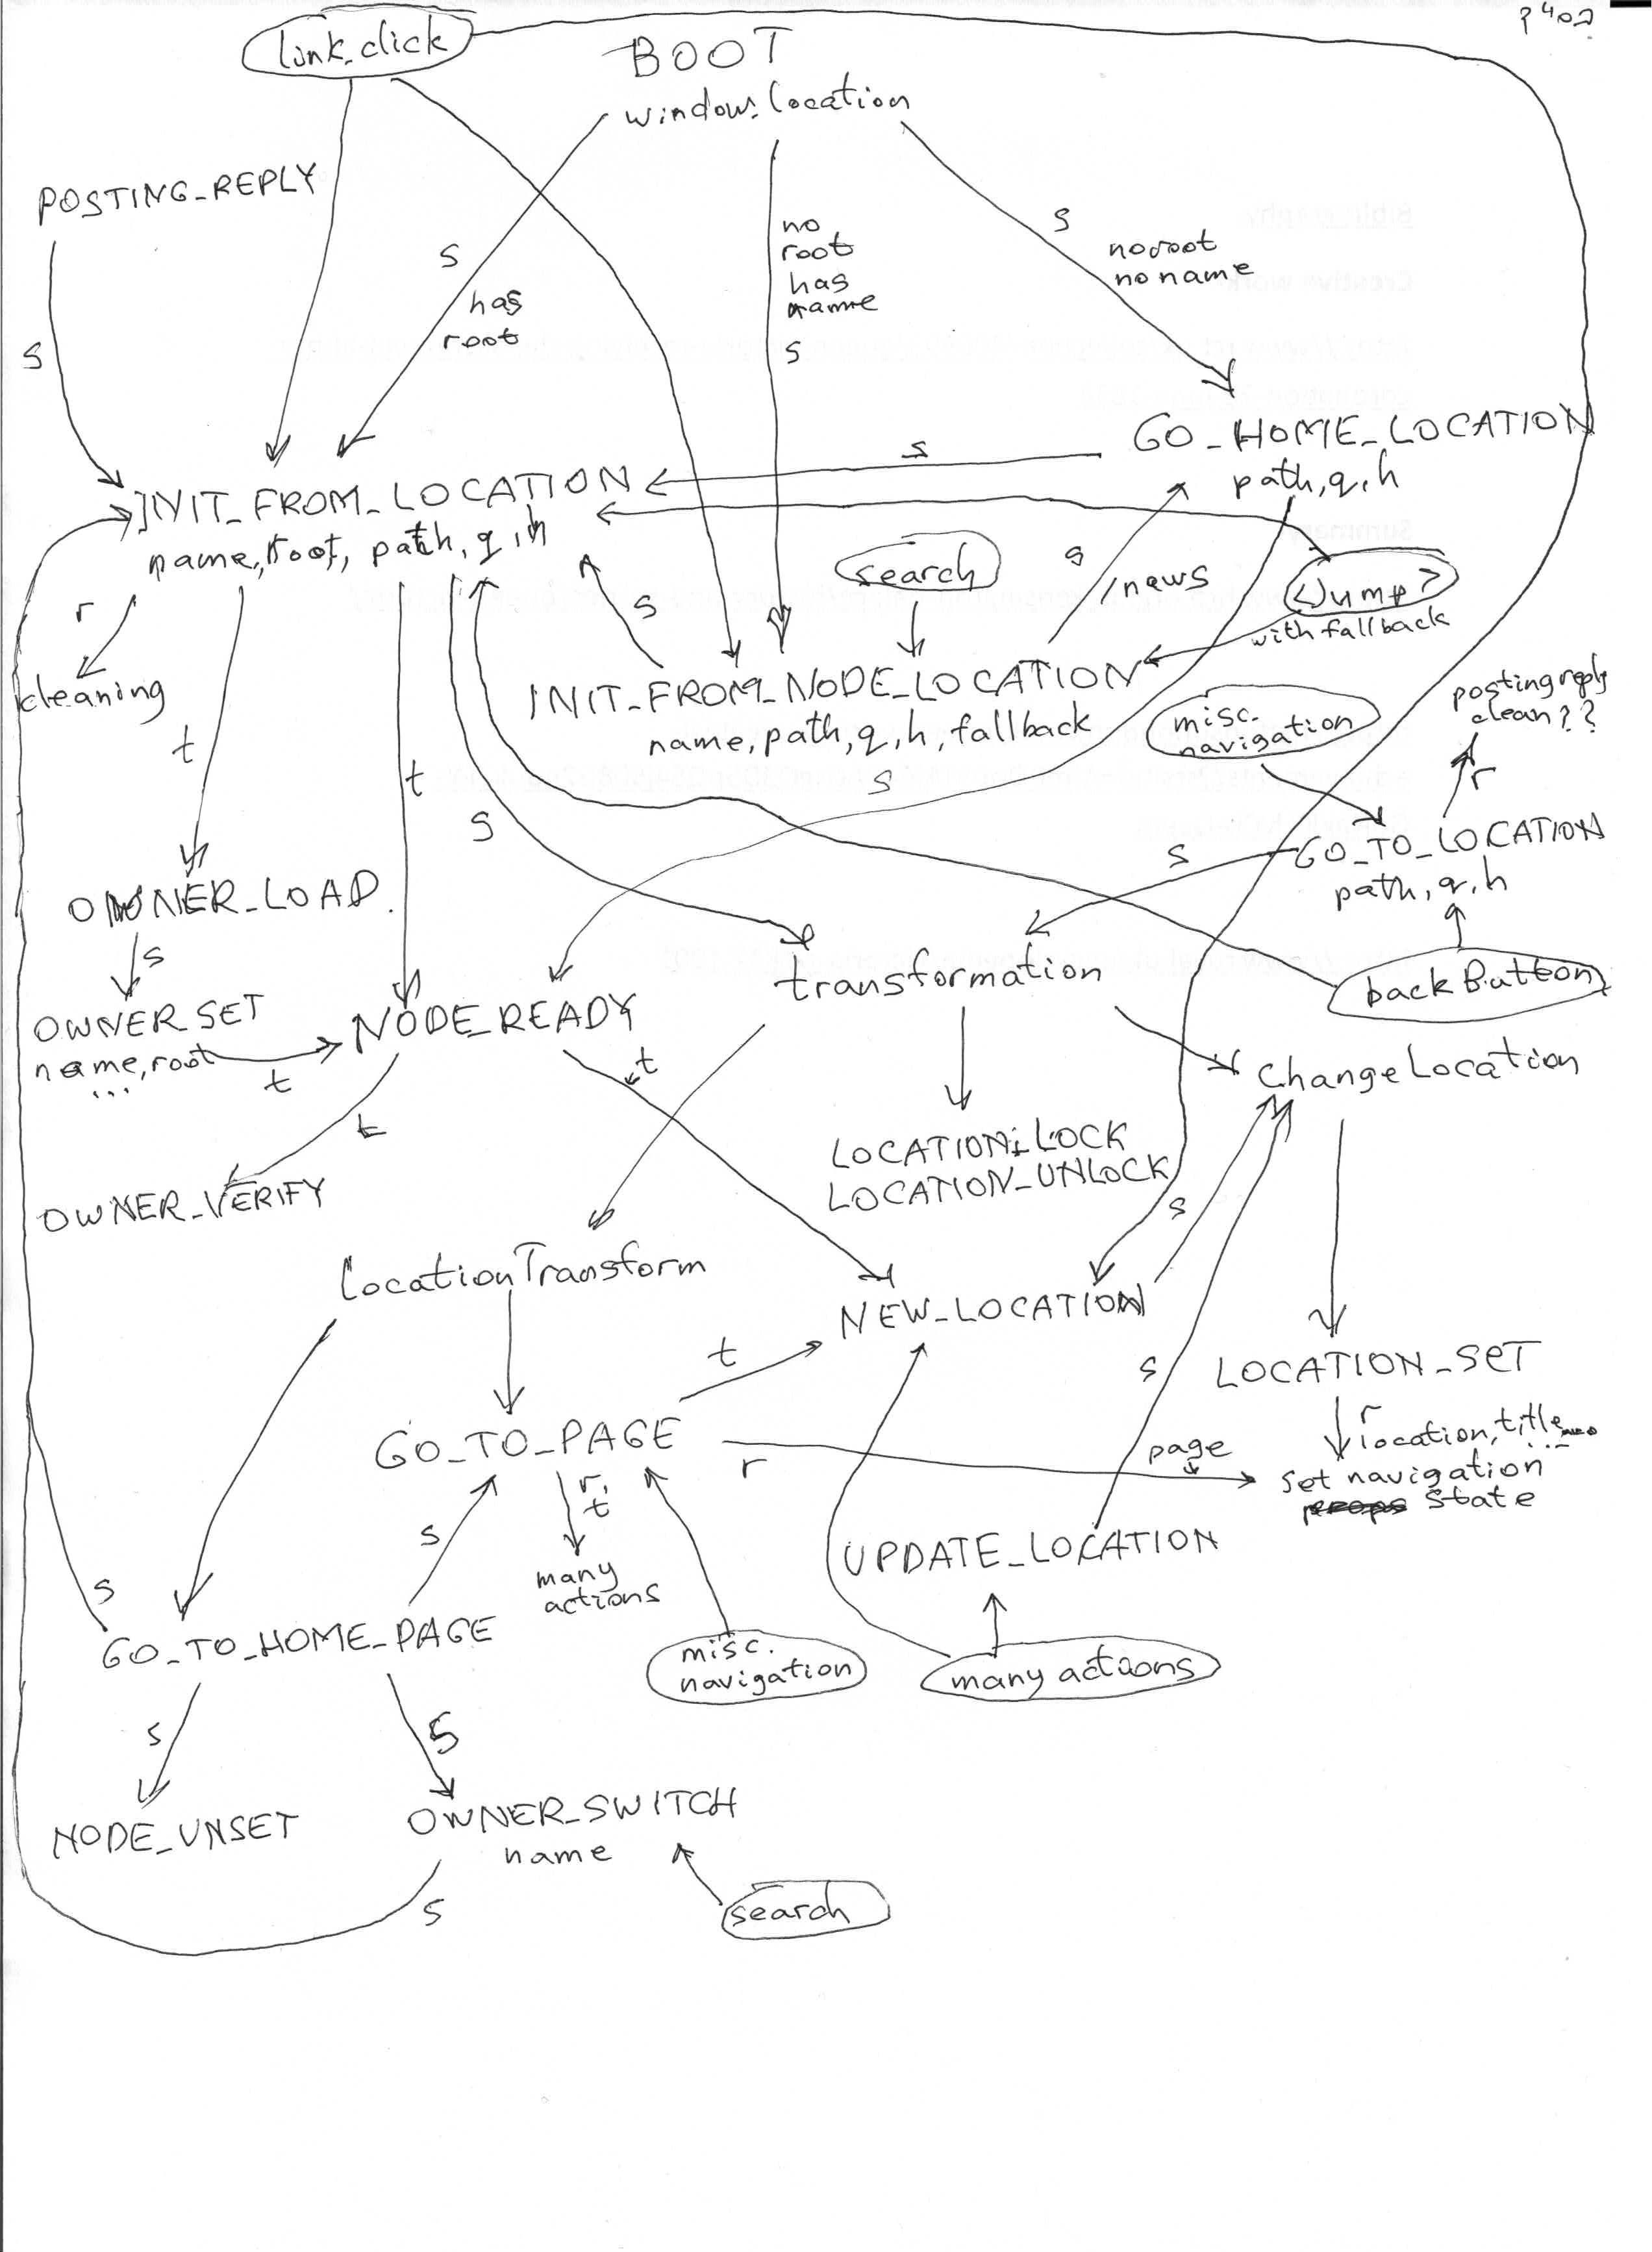 p402
link_click
BOOT
window.location
POSTING_REPLY
s
s
has
root
no
root
has
name
s
s
no root
no name
GO_HOME_LOCATION
path, q, h
s
INIT_FROM_LOCATION
name, root, path, q, h
search
s
news
<Jump>
with fallback
s
r
cleaning
INIT_FROM_NODE_LOCATION
name, path, q, h, fallback
misc.
navigation
posting reply
clean??
r
t
t
s
s
GO_TO_LOCATION
path, q, h
s
OWNER_LOAD
s
transformation
backButton
OWNER_SET
name, root
...
t
NODE_READY
t
t
ChangeLocation
LOCATION_LOCK
LOCATION_UNLOCK
OWNER_VERIFY
s
LocationTransform
NEW_LOCATION
t
s
LOCATION_SET
r
location, title
...
GO_TO_PAGE
r
page
set navigation
props state
r,
t
many
actions
s
UPDATE_LOCATION
s
GO_TO_HOME_PAGE
misc.
navigation
many actions
s
s
NODE_UNSET
OWNER_SWITCH
name
s
search